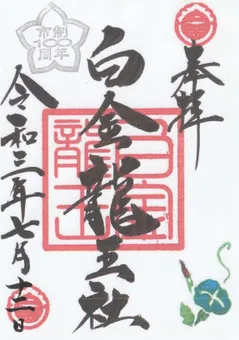 奉拝
白金龍王社
白金
龍王
令和三年七月十二日
市制
100
周年